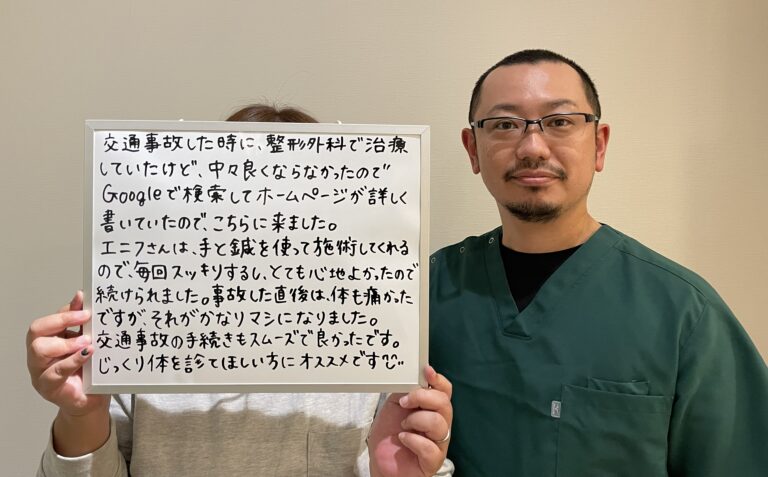 交通事故した時に、整形外科で治療
していたけど、中々良くならなかったので
Googleで検索してホームページが詳しく
書いていたので、こちらに来ました。
エニフさんは、手と鍼を使って施術してくれる
ので、毎回スッキリするし、とても心地よかったので
続けられました。事故した直後は、体も痛かった
ですが、それがかなりマシになりました。
交通事故の手続きもスムーズで良かったです。
じっくり体を診てほしい方にオススメです